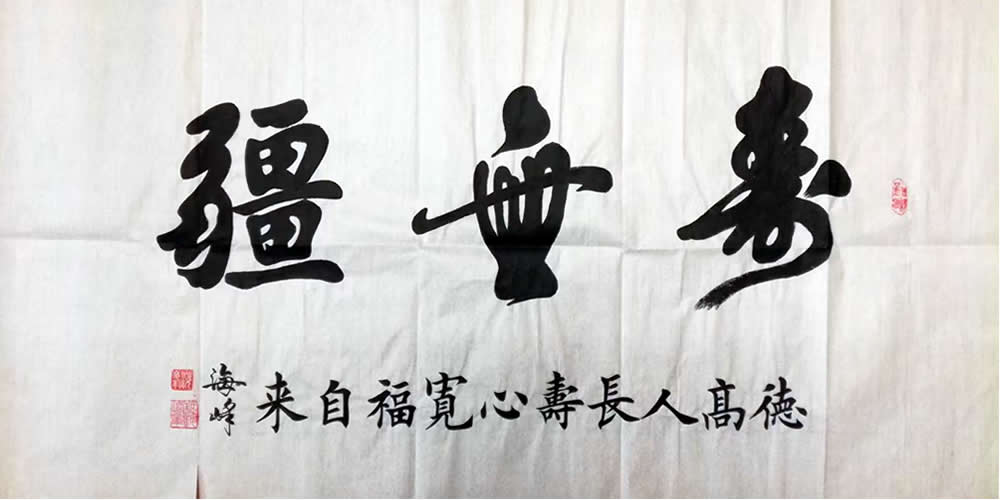 壽無疆
德髙人長壽心寛福自来
海峰